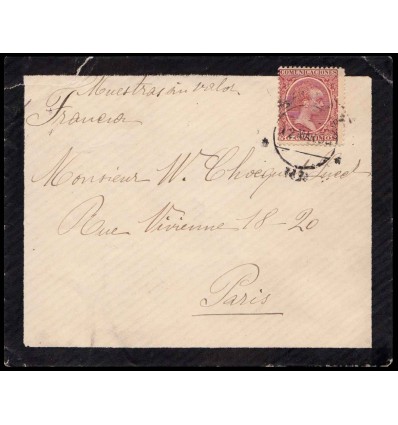 COMUNICACIONES
Muestras sin valor
Francia
Monsieur W.
Rue Vivienne 18-20
Paris